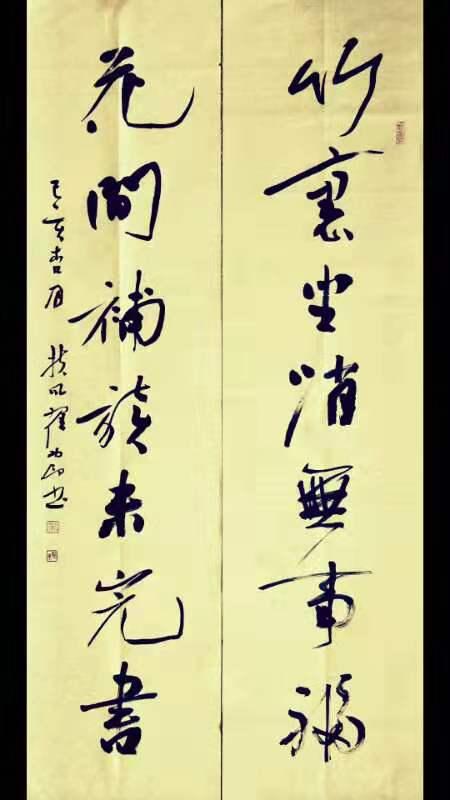 竹裏坐消無事福
花間補讀未完書
己亥杏月